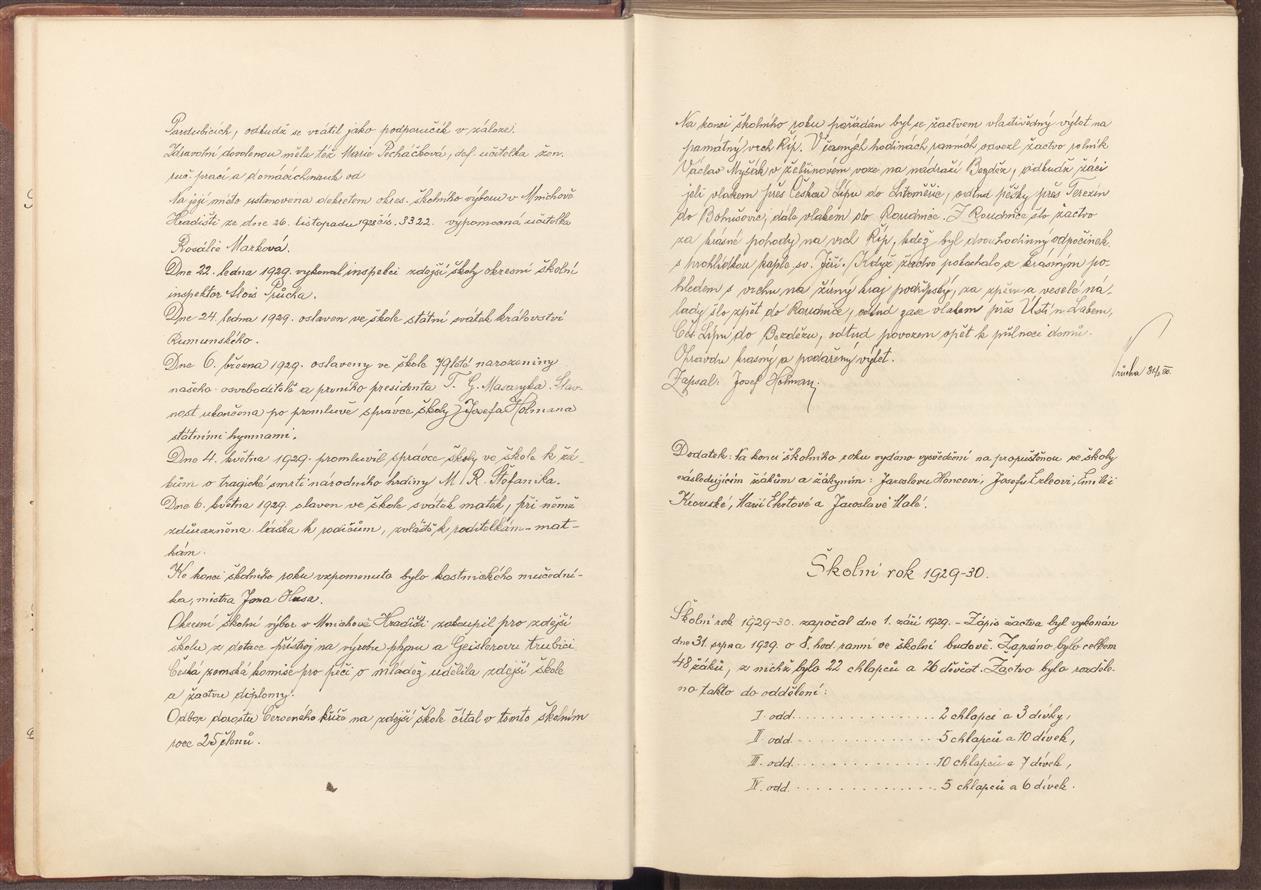 Pardubicích, odkudž se vrátil jako podporučík v záloze.
Zdravotní dovolenou měla též Marie Pecháčková, def. učitelka žen.
ruč. prací a domácích nauk od
Na její místo ustanovena dekretem okres. školního výboru v Mnichově
Hradišti ze dne 26. listopadu 1928 čís. 3322. výpomocná učitelka
Rosálie Marková.
Dne 22. ledna 1929. vykonal inspekci zdejší školy okresní školní
inspektor Alois Průcha.
Dne 24. ledna 1929. oslaven ve škole státní svátek království
Rumunského.
Dne 6. března 1929. oslaveny ve škole 79leté narozeniny
našeho osvoboditele a prvního presidenta T. G. Masaryka. Slav-
nost ukončena po promluvě správce školy Josefa Holmana
státními hymnami.
Dne 4. května 1929. promluvil správce školy ve škole k žá-
kům o tragické smrti národního hrdiny M. R. Štefanika.
Dne 6. května 1929. slaven ve škole svátek matek, při němž
zdůrazněna láska k rodičům, zvláště k roditelkám - mat-
kám.
Ke konci školního roku vzpomenuto bylo kostnického mučední-
ka, mistra Jana Husa.
Okresní školní výbor v Mnichově Hradišti zakoupil pro zdejší
školu z dotace přístroj na výrobu plynu a Geislerovu trubici
Česká zemská komise pro péči o mládež udělila zdejší škole
a žactvu diplomy.
Odbor dorostu Červeného kříže na zdejší škole čítal v tomto školním
roce 25 členů.
Na konci školního roku pořádán byl se žactvem vlastivědný výlet na
památný vrch Říp. V časných hodinách ranních odvezl žactvo rolník
Václav Myšák v žebřinovém voze na nádraží Bezděz, odkudž žáci
jeli vlakem přes Českou Lípu do Litoměřic, odtud pěšky přes Terezín
do Bohušovic, dále vlakem do Roudnice. Z Roudnice šlo žactvo
za krásné pohody na vrch Říp, kdež byl dvouhodinný odpočinek
s prohlídkou kaple sv. Jiří. Když žactvo pokochalo se krásným po-
hledem s vrchu na žírný kraj podřipský, za zpěvu a veselé ná-
lady šlo zpět do Roudnice, odtud zase vlakem přes Ústí n. Labem,
Čes. Lípu do Bezdězu, odtud povozem opět k půlnoci domů.
Opravdu krásný a podařený výlet.
Zapsal: Josef Holman.
Průcha
Dodatek: Na konci školního roku vydáno vysvědčení na propuštěnou ze školy
následujícím žákům a žákyním: Jaroslavu Honcovi, Josefu Erleovi, Emilii
Marii Ehrtové a Jaroslavě Malé.
Školní rok 1929-30.
Školní rok 1929-30. započal dne 1. září 1929. - Zápis žactva byl vykonán
dne 31. srpna 1929. o 8. hod. ranní ve školní budově. Zapsáno bylo celkem
48 žáků, z nichž bylo 22 chlapců a 26 děvčat. Žactvo bylo rozděle-
no takto do oddělení:
I. odd. . . . . . . . . . . . . . . . 2 chlapci a 3 dívky,
II. odd. . . . . . . . . . . . . . . . 5 chlapců a 10 dívek,
III. odd. . . . . . . . . . . . . . . . 10 chlapců a 7 dívek,
IV. odd. . . . . . . . . . . . . . . . 5 chlapců a 6 dívek.